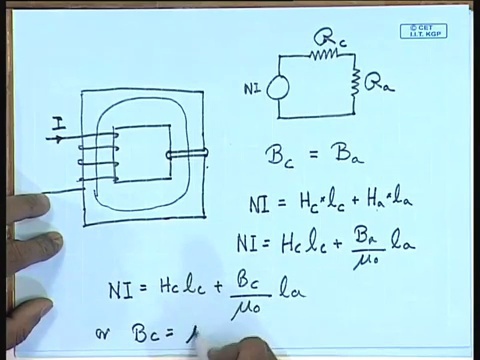 © CET
I.I.T. KGP
R_c
NI
R_a
I
B_c = B_a
NI = H_c * l_c + H_a * l_a
NI = H_c l_c + B_a/μ_0 l_a
NI = H_c l_c + B_c/μ_0 l_a
or B_c = μ